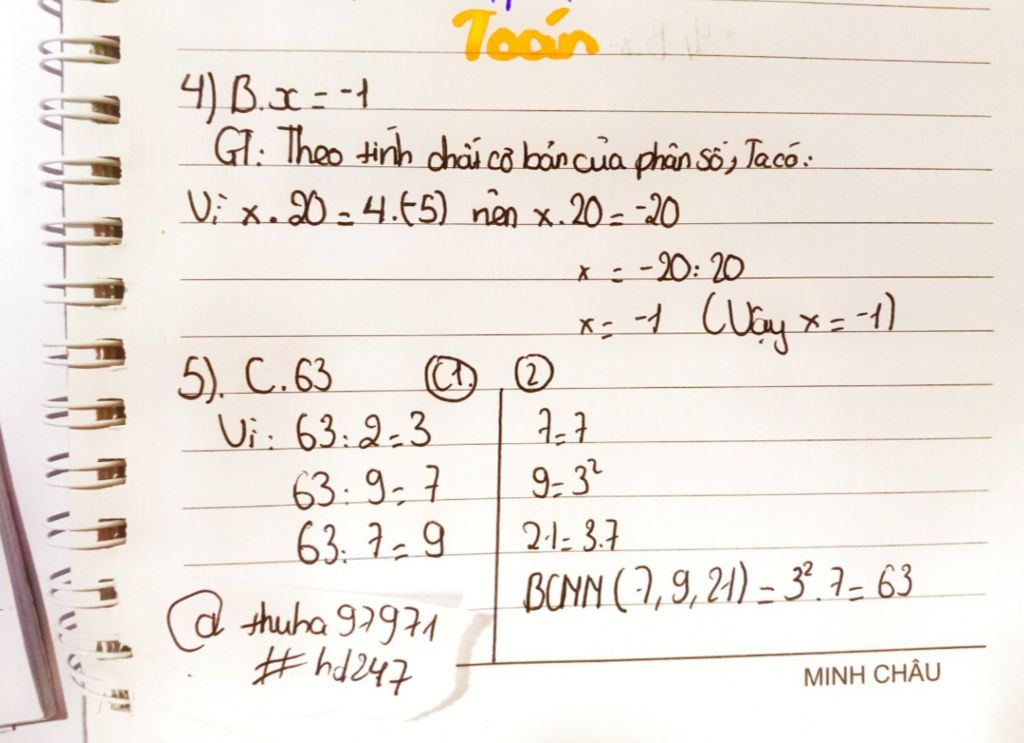 Toán
4) B. x = -1
GT: Theo tính chất cơ bản của phân số, Ta có:
Vì x . 20 = 4.(-5) nên x . 20 = -20
x = -20 : 20
x = -1 (Vậy x = -1)
5). C. 63
C1.
Vì: 63 : 2 = 3
63 : 9 = 7
63 : 7 = 9
2
7 = 7
9 = 3²
21 = 3.7
BCNN (7, 9, 21) = 3² . 7 = 63
@ thuha97971
# hd247
MINH CHÂU